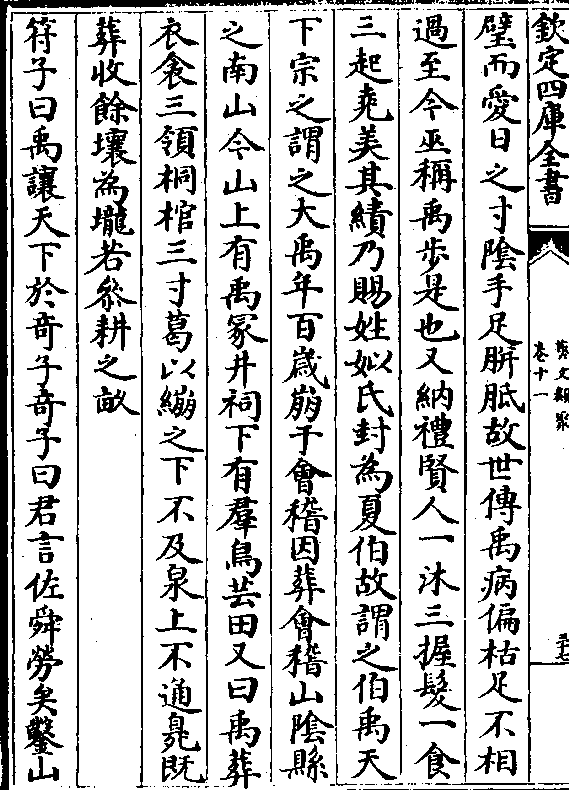 欽定四庫全書
藝文類聚
卷十一
璧而愛日之寸陰手足胼胝故世傳禹病偏枯足不相
過至今巫稱禹步是也又納禮賢人一沐三握髮一食
三起堯美其績乃賜姓姒氏封為夏伯故謂之伯禹天
下宗之謂之大禹年百歲崩于會稽因葬會稽山陰縣
之南山今山上有禹冢井祠下有羣鳥芸田又曰禹葬
衣衾三領桐棺三寸葛以繃之下不及泉上不通臭既
葬收餘壤為壠若參耕之畝
符子曰禹讓天下於奇子奇子曰君言佐舜勞矣鑿山